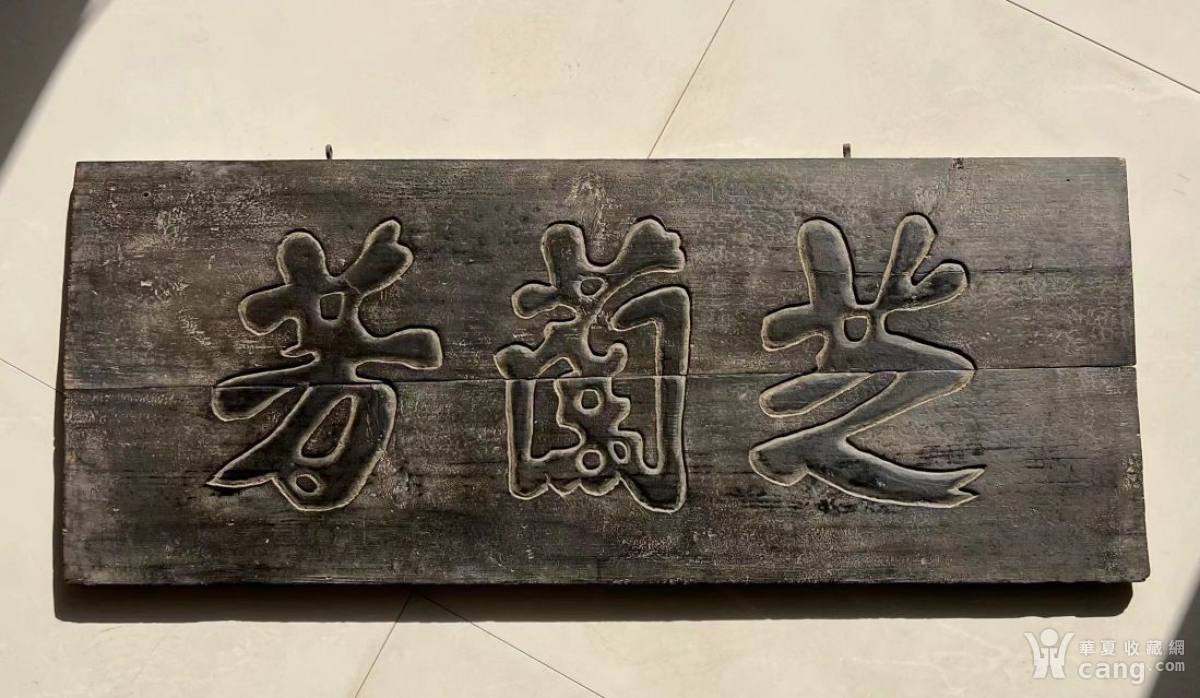 芝蘭芳
華夏收藏網
cang.com